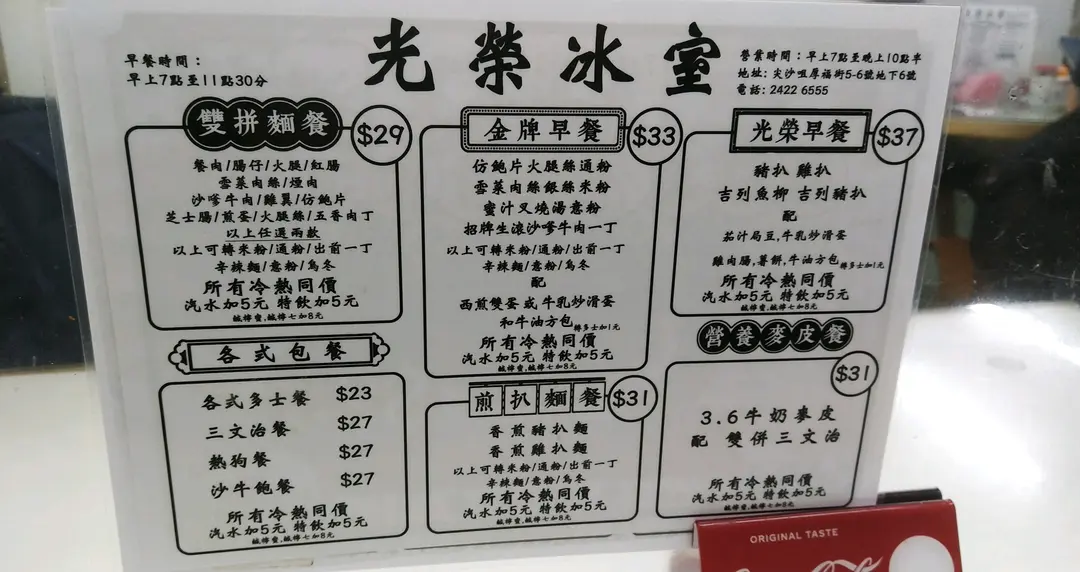 光榮冰室
早餐時間：
早上7點至11點30分
營業時間：早上7點至晚上10點半
地址：尖沙咀厚福街5-6號地下6號
電話：2422 6555
雙拼麵餐 $29
餐肉/腸仔/火腿/紅腸
雪菜肉絲/煙肉
沙嗲牛肉/雞翼/仿鮑片
芝士腸/煎蛋/火腿絲/五香肉丁
以上任選兩款
以上可轉米粉/通粉/出前一丁
辛辣麵/意粉/烏冬
所有冷熱同價
汽水加5元 特飲加5元
鹹檸蜜,鹹檸七加8元
各式包餐
各式多士餐 $23
三文治餐 $27
熱狗餐 $27
沙牛飽餐 $27
所有冷熱同價
汽水加5元 特飲加5元
鹹檸蜜,鹹檸七加8元
金牌早餐 $33
仿鮑片火腿絲通粉
雪菜肉絲銀絲米粉
蜜汁叉燒湯意粉
招牌生滾沙嗲牛肉一丁
以上可轉米粉/通粉/出前一丁
辛辣麵/意粉/烏冬
配
西煎雙蛋或牛乳炒滑蛋
和牛油方包轉多士加1元
所有冷熱同價
汽水加5元 特飲加5元
鹹檸蜜,鹹檸七加8元
煎扒麵餐 $31
香煎豬扒麵
香煎雞扒麵
以上可轉米粉/通粉/出前一丁
辛辣麵/意粉/烏冬
所有冷熱同價
汽水加5元 特飲加5元
鹹檸蜜,鹹檸七加8元
光榮早餐 $37
豬扒 雞扒
吉列魚柳 吉列豬扒
配
茄汁焗豆,牛乳炒滑蛋
雞肉腸,薯餅,牛油方包轉多士加1元
所有冷熱同價
汽水加5元 特飲加5元
鹹檸蜜,鹹檸七加8元
營養麥皮餐
$31
3.6牛奶麥皮
配 雙併三文治
所有冷熱同價
汽水加5元 特飲加5元
鹹檸蜜,鹹檸七加8元
ORIGINAL TASTE